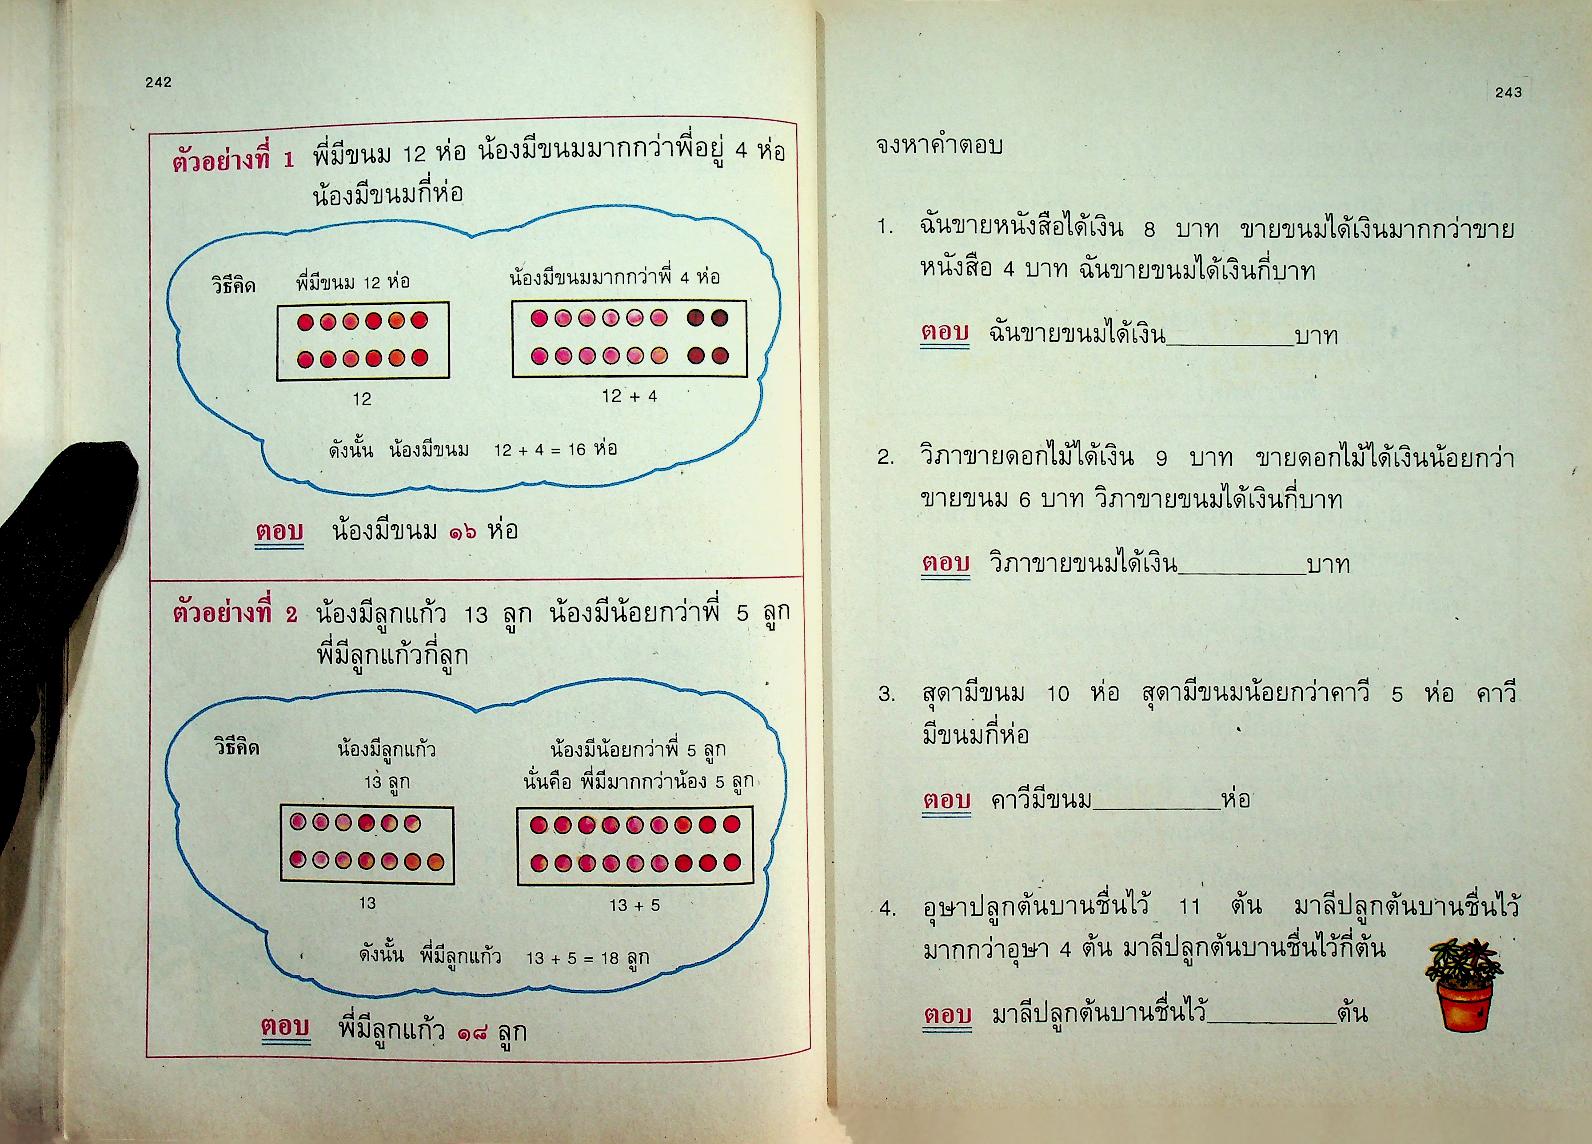 242
ตัวอย่างที่ 1 พี่มีขนม 12 ห่อ น้องมีขนมมากกว่าพี่อยู่ 4 ห่อ
น้องมีขนมกี่ห่อ
วิธีคิด พี่มีขนม 12 ห่อ น้องมีขนมมากกว่าพี่ 4 ห่อ
12 12 + 4
ดังนั้น น้องมีขนม 12 + 4 = 16 ห่อ
ตอบ น้องมีขนม ๑๖ ห่อ
ตัวอย่างที่ 2 น้องมีลูกแก้ว 13 ลูก น้องมีน้อยกว่าพี่ 5 ลูก
พี่มีลูกแก้วกี่ลูก
วิธีคิด น้องมีลูกแก้ว น้องมีน้อยกว่าพี่ 5 ลูก
13 ลูก นั่นคือ พี่มีมากกว่าน้อง 5 ลูก
13 13 + 5
ดังนั้น พี่มีลูกแก้ว 13 + 5 = 18 ลูก
ตอบ พี่มีลูกแก้ว ๑๘ ลูก
243
จงหาคำตอบ
1. ฉันขายหนังสือได้เงิน 8 บาท ขายขนมได้เงินมากกว่าขาย
หนังสือ 4 บาท ฉันขายขนมได้เงินกี่บาท
ตอบ ฉันขายขนมได้เงิน__________บาท
2. วิภาขายดอกไม้ได้เงิน 9 บาท ขายดอกไม้ได้เงินน้อยกว่า
ขายขนม 6 บาท วิภาขายขนมได้เงินกี่บาท
ตอบ วิภาขายขนมได้เงิน__________บาท
3. สุดามีขนม 10 ห่อ สุดามีขนมน้อยกว่าคาวี 5 ห่อ คาวี
มีขนมกี่ห่อ
ตอบ คาวีมีขนม__________ห่อ
4. อุษาปลูกต้นบานชื่นไว้ 11 ต้น มาลีปลูกต้นบานชื่นไว้
มากกว่าอุษา 4 ต้น มาลีปลูกต้นบานชื่นไว้กี่ต้น
ตอบ มาลีปลูกต้นบานชื่นไว้__________ต้น